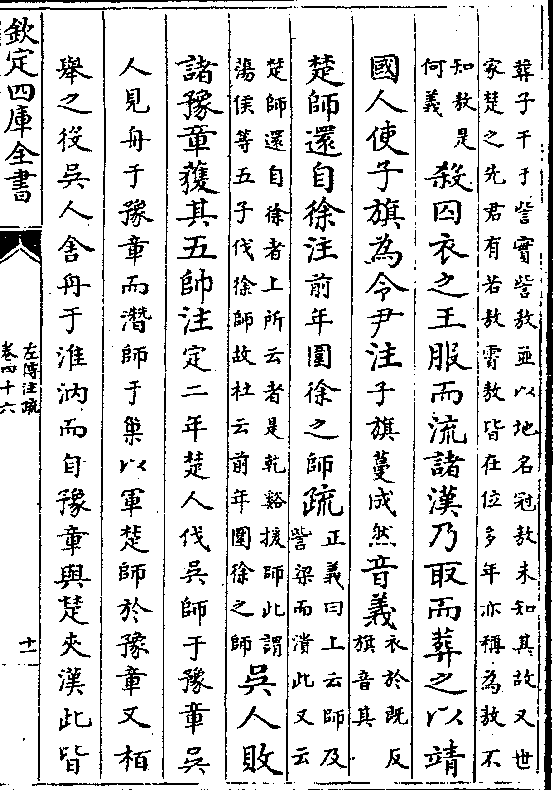 葬子干于訾實訾敖並以地名冠敖未知其故又世
家楚之先君有若敖霄敖皆在位多年亦稱為敖不
知敖是
何義
殺囚衣之王服而流諸漢乃取而葬之以靖
國人使子旗為令尹注子旗蔓成然音義
衣於既反
旗音其
楚師還自徐注前年圍徐之師疏
正義曰上云師及
訾梁而潰此又云
楚師還自徐者上所云者是乾谿援師此謂
蕩侯等五子伐徐師故杜云前年圍徐之師
吳人敗
諸豫章獲其五帥注定二年楚人伐吳師于豫章吳
人見舟于豫章而潛師于巢以軍楚師於豫章又栢
舉之役吳人舍舟于淮汭而自豫章與楚夾漢此皆
欽定四庫全書
左傳注疏
卷四十六
十一